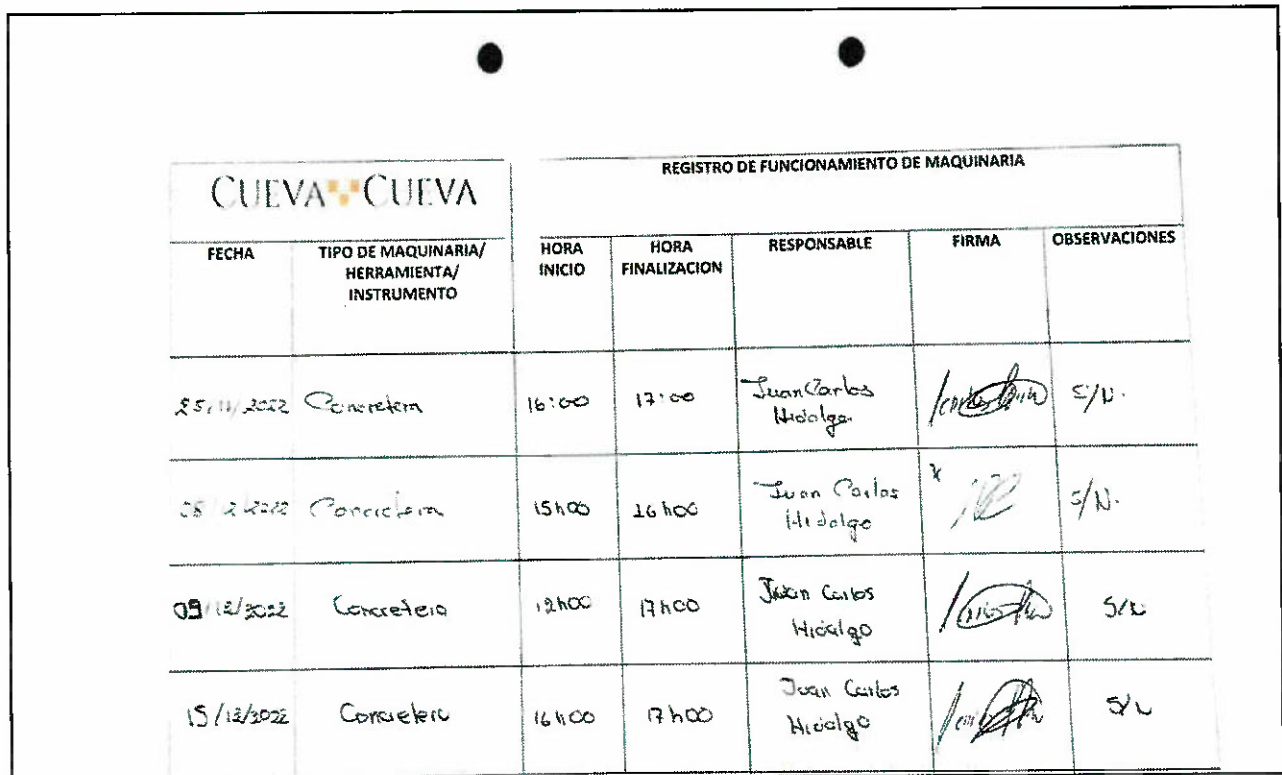 CUEVA CUEVA
REGISTRO DE FUNCIONAMIENTO DE MAQUINARIA
FECHA
TIPO DE MAQUINARIA/
HERRAMIENTA/
INSTRUMENTO
HORA
INICIO
HORA
FINALIZACION
RESPONSABLE
FIRMA
OBSERVACIONES
25/11/2022 Concretera 16:00 17:00 Juan Carlos
Hidalgo. S/N.
Concretera 15h00 16h00 Juan Carlos
Hidalgo S/N.
09/12/2022 Concretera 12h00 17h00 Juan Carlos
Hidalgo S/N
15/12/2022 Concretera 16h00 17h00 Juan Carlos
Hidalgo S/N